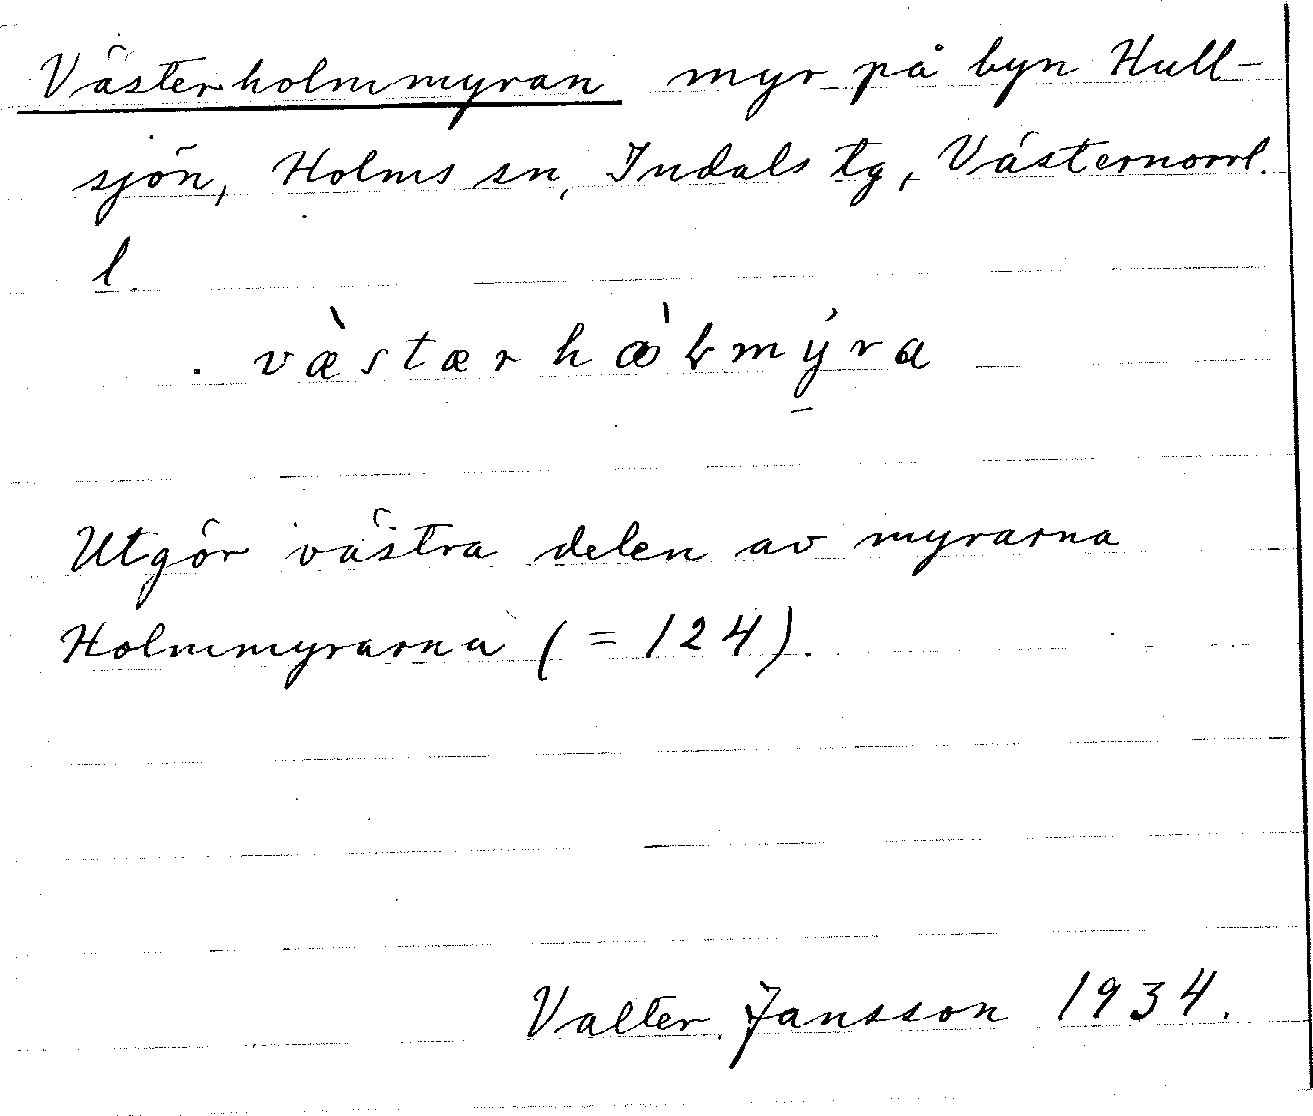 Västerholmmyran myr på byn Hull-
sjön, Holms sn, Indals tg, Västernorrl.
l.
Utgör västra delen av myrarna
Holmmyrarna (= 124).
Valter Jansson 1934.